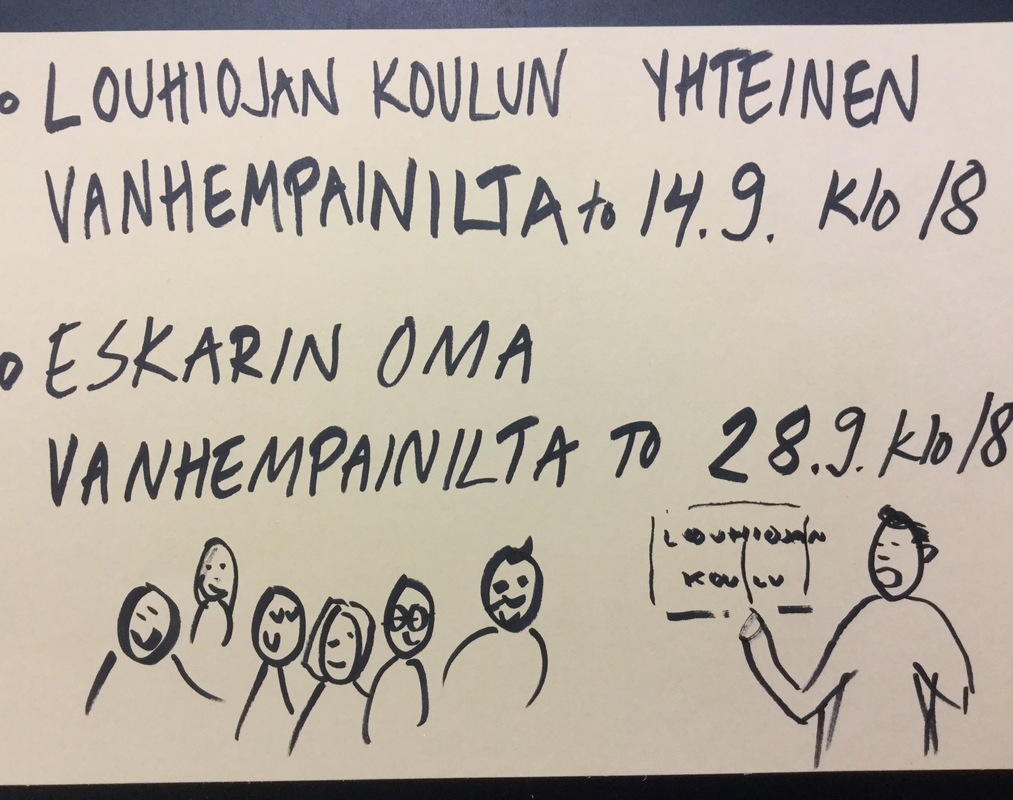 o LOUHIOJAN KOULUN YHTEINEN
VANHEMPAINILTA to 14.9. klo 18
o ESKARIN OMA
VANHEMPAINILTA TO 28.9. klo 18
LOUHIOJAN
KOULU